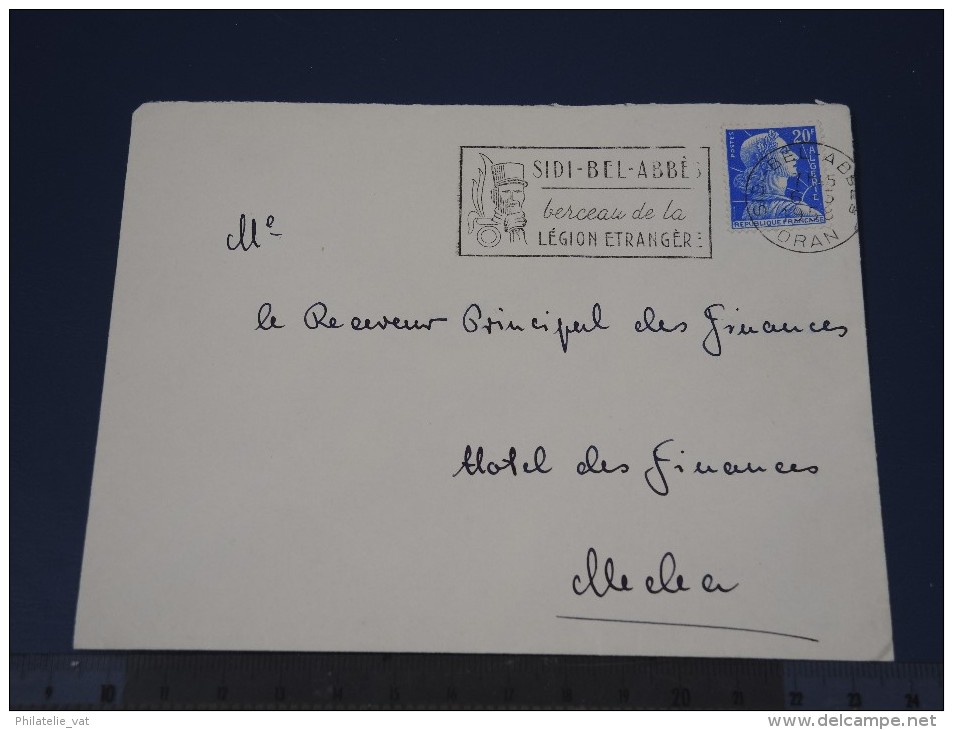 SIDI-BEL-ABBÈS
berceau de la
LÉGION ETRANGÈRE
POSTES
20F
ALGERIE
REPUBLIQUE FRANCAISE
BEL-ABBES
ORAN
Me
le Receveur Principal des Finances
Hotel des Finances
Medea
9 10 11 12 13 14 15 16 17 18 19 20 21 22 23 24
Philatelie_vat
www.delcampe.net